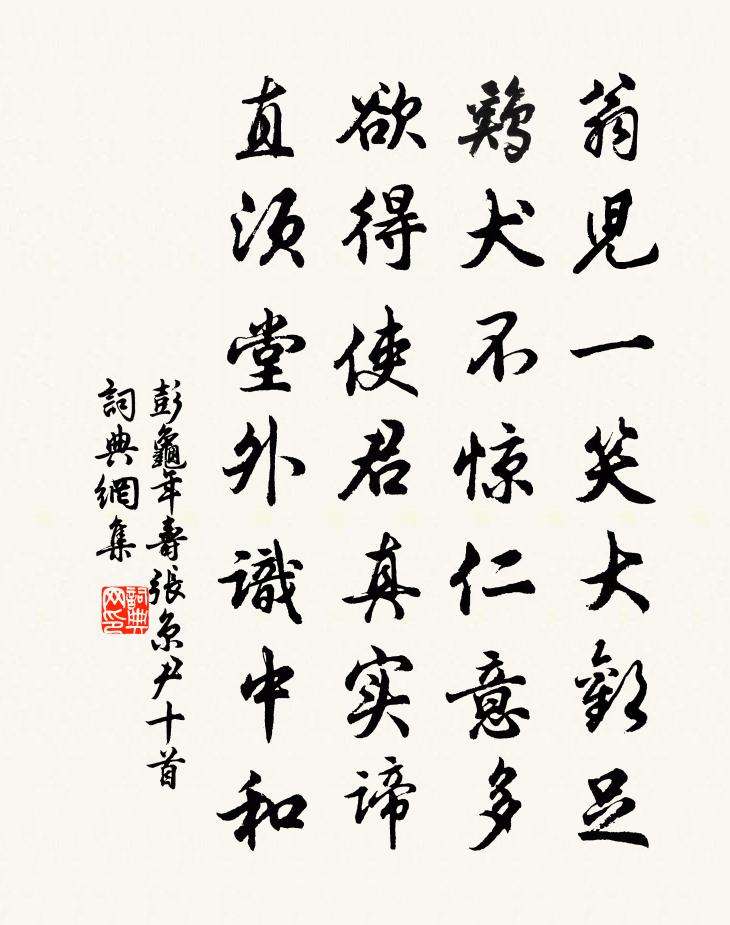 翁兒一笑大歡足
鷄犬不惊仁意多
欲得使君真实諦
直須堂外識中和
彭龜年壽張京尹十首
詞典網集
詞典网印